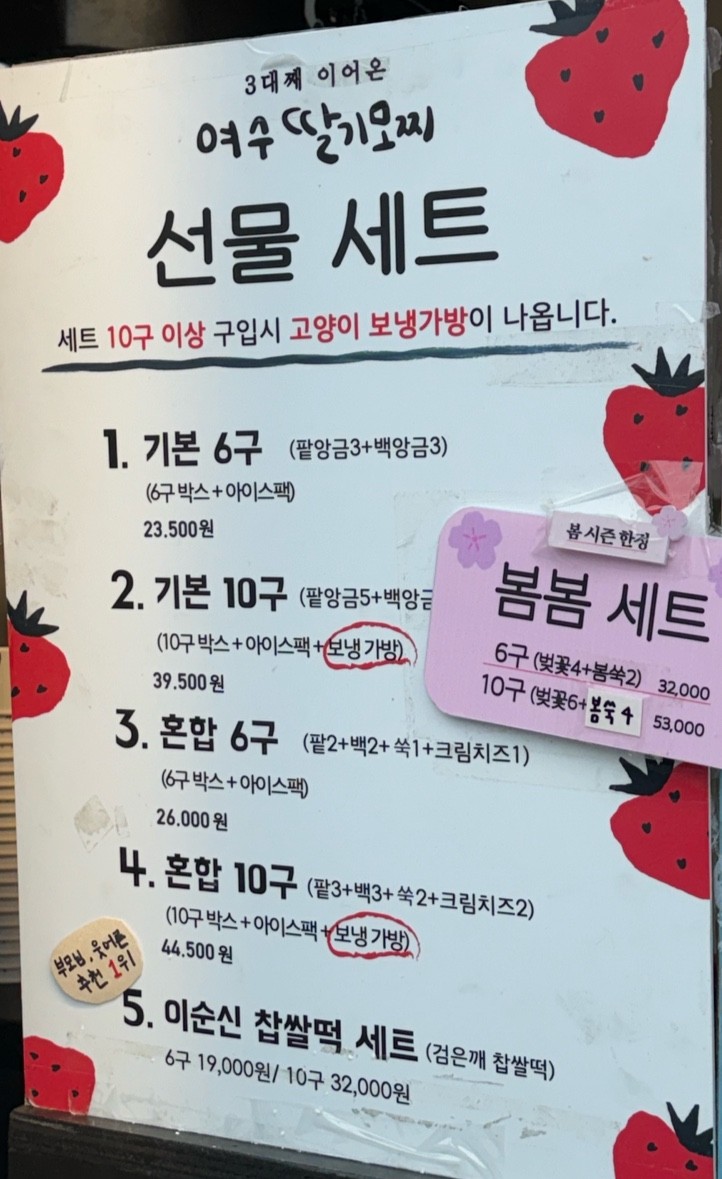 3대째 이어온
여수 딸기모찌
선물 세트
세트 10구 이상 구입시 고양이 보냉가방이 나옵니다.
1. 기본 6구 (팥앙금3+백앙금3)
(6구 박스+아이스팩)
23.500원
2. 기본 10구 (팥앙금5+백앙금
(10구 박스+아이스팩+보냉 가방)
39.500원
봄 시즌 한정
봄봄 세트
6구 (벚꽃4+봄쑥2) 32,000
10구 (벚꽃6+봄쑥 4 53,000
3. 혼합 6구 (팥2+백2+쑥1+크림치즈1)
(6구 박스+아이스팩)
26.000원
4. 혼합 10구 (팥3+백3+쑥2+크림치즈2)
(10구 박스+아이스팩+보냉 가방)
44.500원
부모님, 웃어른
추천 1위
5. 이순신 찹쌀떡 세트 (검은깨 찹쌀떡)
6구 19,000원/ 10구 32,000원